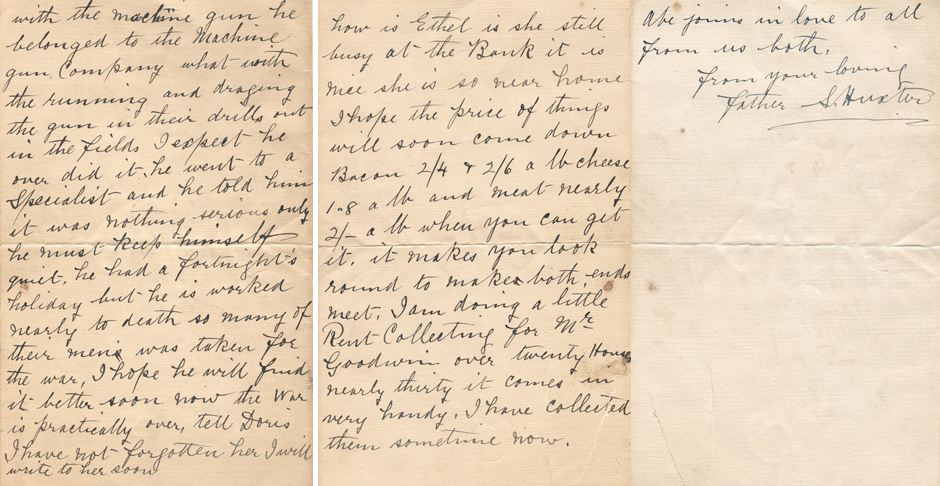 with the machine gun he
belonged to the Machine
gun Company what with
the running and draging
the gun in their drills out
in the fields I expect he
over did it. he went to a
Specialist and he told him
it was nothing serious only
he must keep himself
quiet. he had a fortnight's
holiday but he is worked
nearly to death so many of
their mens was taken for
the war, I hope he will find
it better soon now the War
is practically over, tell Doris
I have not forgotten her I will
write to her soon
how is Ethel is she still
busy at the Bank it is
nice she is so near home
I hope the price of things
will soon come down
Bacon 2/4 & 2/6 a lb cheese
1-8 a lb and meat nearly
2/- a lb when you can get
it. it makes you look
round to makes both ends
meet. I am doing a little
Rent Collecting for Mr
Goodwin over twenty Houses
nearly thirty it comes in
very handy. I have collected
them sometime now.
Abe joins in love to all
from us both.
from your loving
Father S. Huxter